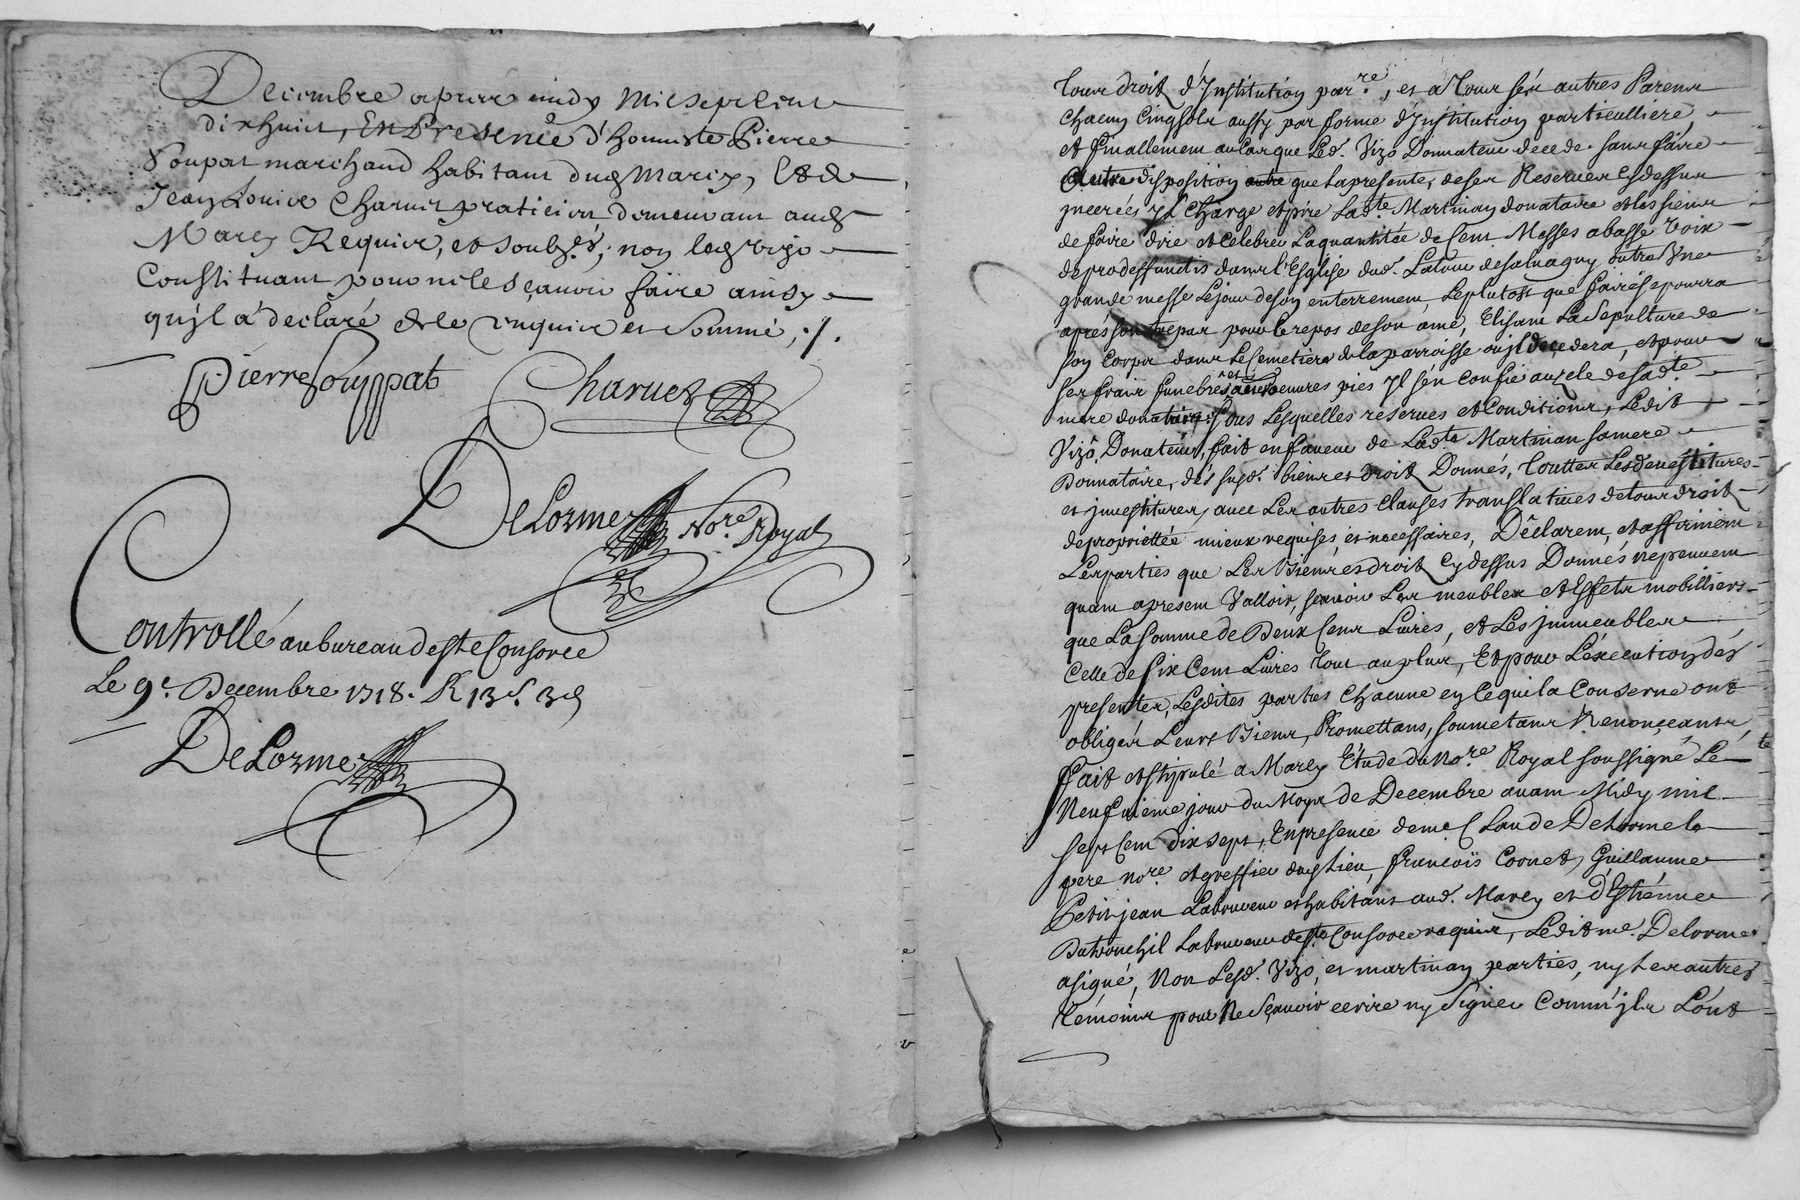 Decembre apres midy mil sept cent
dixhuit, En Presence d'honneste Pierre
Soupat marchand habitant dud Marcy, Et de
Jean Louise Charuet praticien demeurant aud
Marcy Requis, et soubz.és, non led Vizo
Constituant pour ne le sçavoir faire ainsy
qu'jl á déclaré de le enquis et sommé, ./.
Pierre Souppat Charuet
DeLorme No.re Royal
Controllé au bureau deste Consorce
Le 9e. Decembre 1718. R 13s. 3d
DeLorme
tous droit d'Institution par.re, et a tous ses autres Parens
chacun Cinq solz aussy par forme d'Institution particulliere
et finallement au Cas que Led. Vizo Donnateur decede sans faire
autre disposition que la presente, de ses Reserves Cy dessus
jnserées jl Charge et prie Lad.te Martinay donataire et les siens
de faire dire et Celebrer La quantitée de Cent Messes a basse Voix
de pro deffunctis dans l'Esglise dud. Latour de Salvagny outre Une
grande messe Le jour de son enterrement Le plutost que faire se pourra
aprés son trepas pour le repos de son ame, Elisant La Sepulture de
son Corps dans Le Cemetiere de la parroisse ou jl decedera, et pour
ses frais funebres et oeuvres pies jl s'en Confie au zele de sad.te
mere donataire, Sous Lesquelles reserves et Conditions, Ledit
Vizo, Donateur, fait en faveur de Lad.te Martinan sa mere
Donnataire, dés susd. biens et droit Donnés, touttes Les devestitures
et jnvestitures, avec Les autres Clauses translatives de tous droit
de propriettée mieux requises, et necessaires, Déclarent, et affirment
Les parties que Les Biens et droit Cy dessus Donnés ne peuvent
quant a present Valloir, sçavoir Les meubles et Effets mobilliers
que La somme de Deux Cens Livres, et Les jmmeubles
Celle de six Cent Livres tout au plus, Et pour L'execution dés
presentes, Lesdites parties Chacune en Ce qui la Conserne ont
obligés Leurs Biens, Promettans, soumetans Renonçeants,
fait et stipulé a Marcy Etude du No.re Royal soussigné Le
Neufvieme jour du Moys de Decembre avant Midy mil
sept Cent dix sept, En presence de me Claude Delorme le
pere no.re et greffier dud Lieu, francois Cornet, Guillaume
Petitjean Laboureur et habitans aud. Marcy et d'Estienne
Dutronchil Laboureur deste Consorce requis, Ledit me. Delorme
a signé, Non Lesd. Vizo, et martinay parties, ny Les autres
témoins pour Ne Sçavoir ecrire ny Signer Comm'jls L'ont